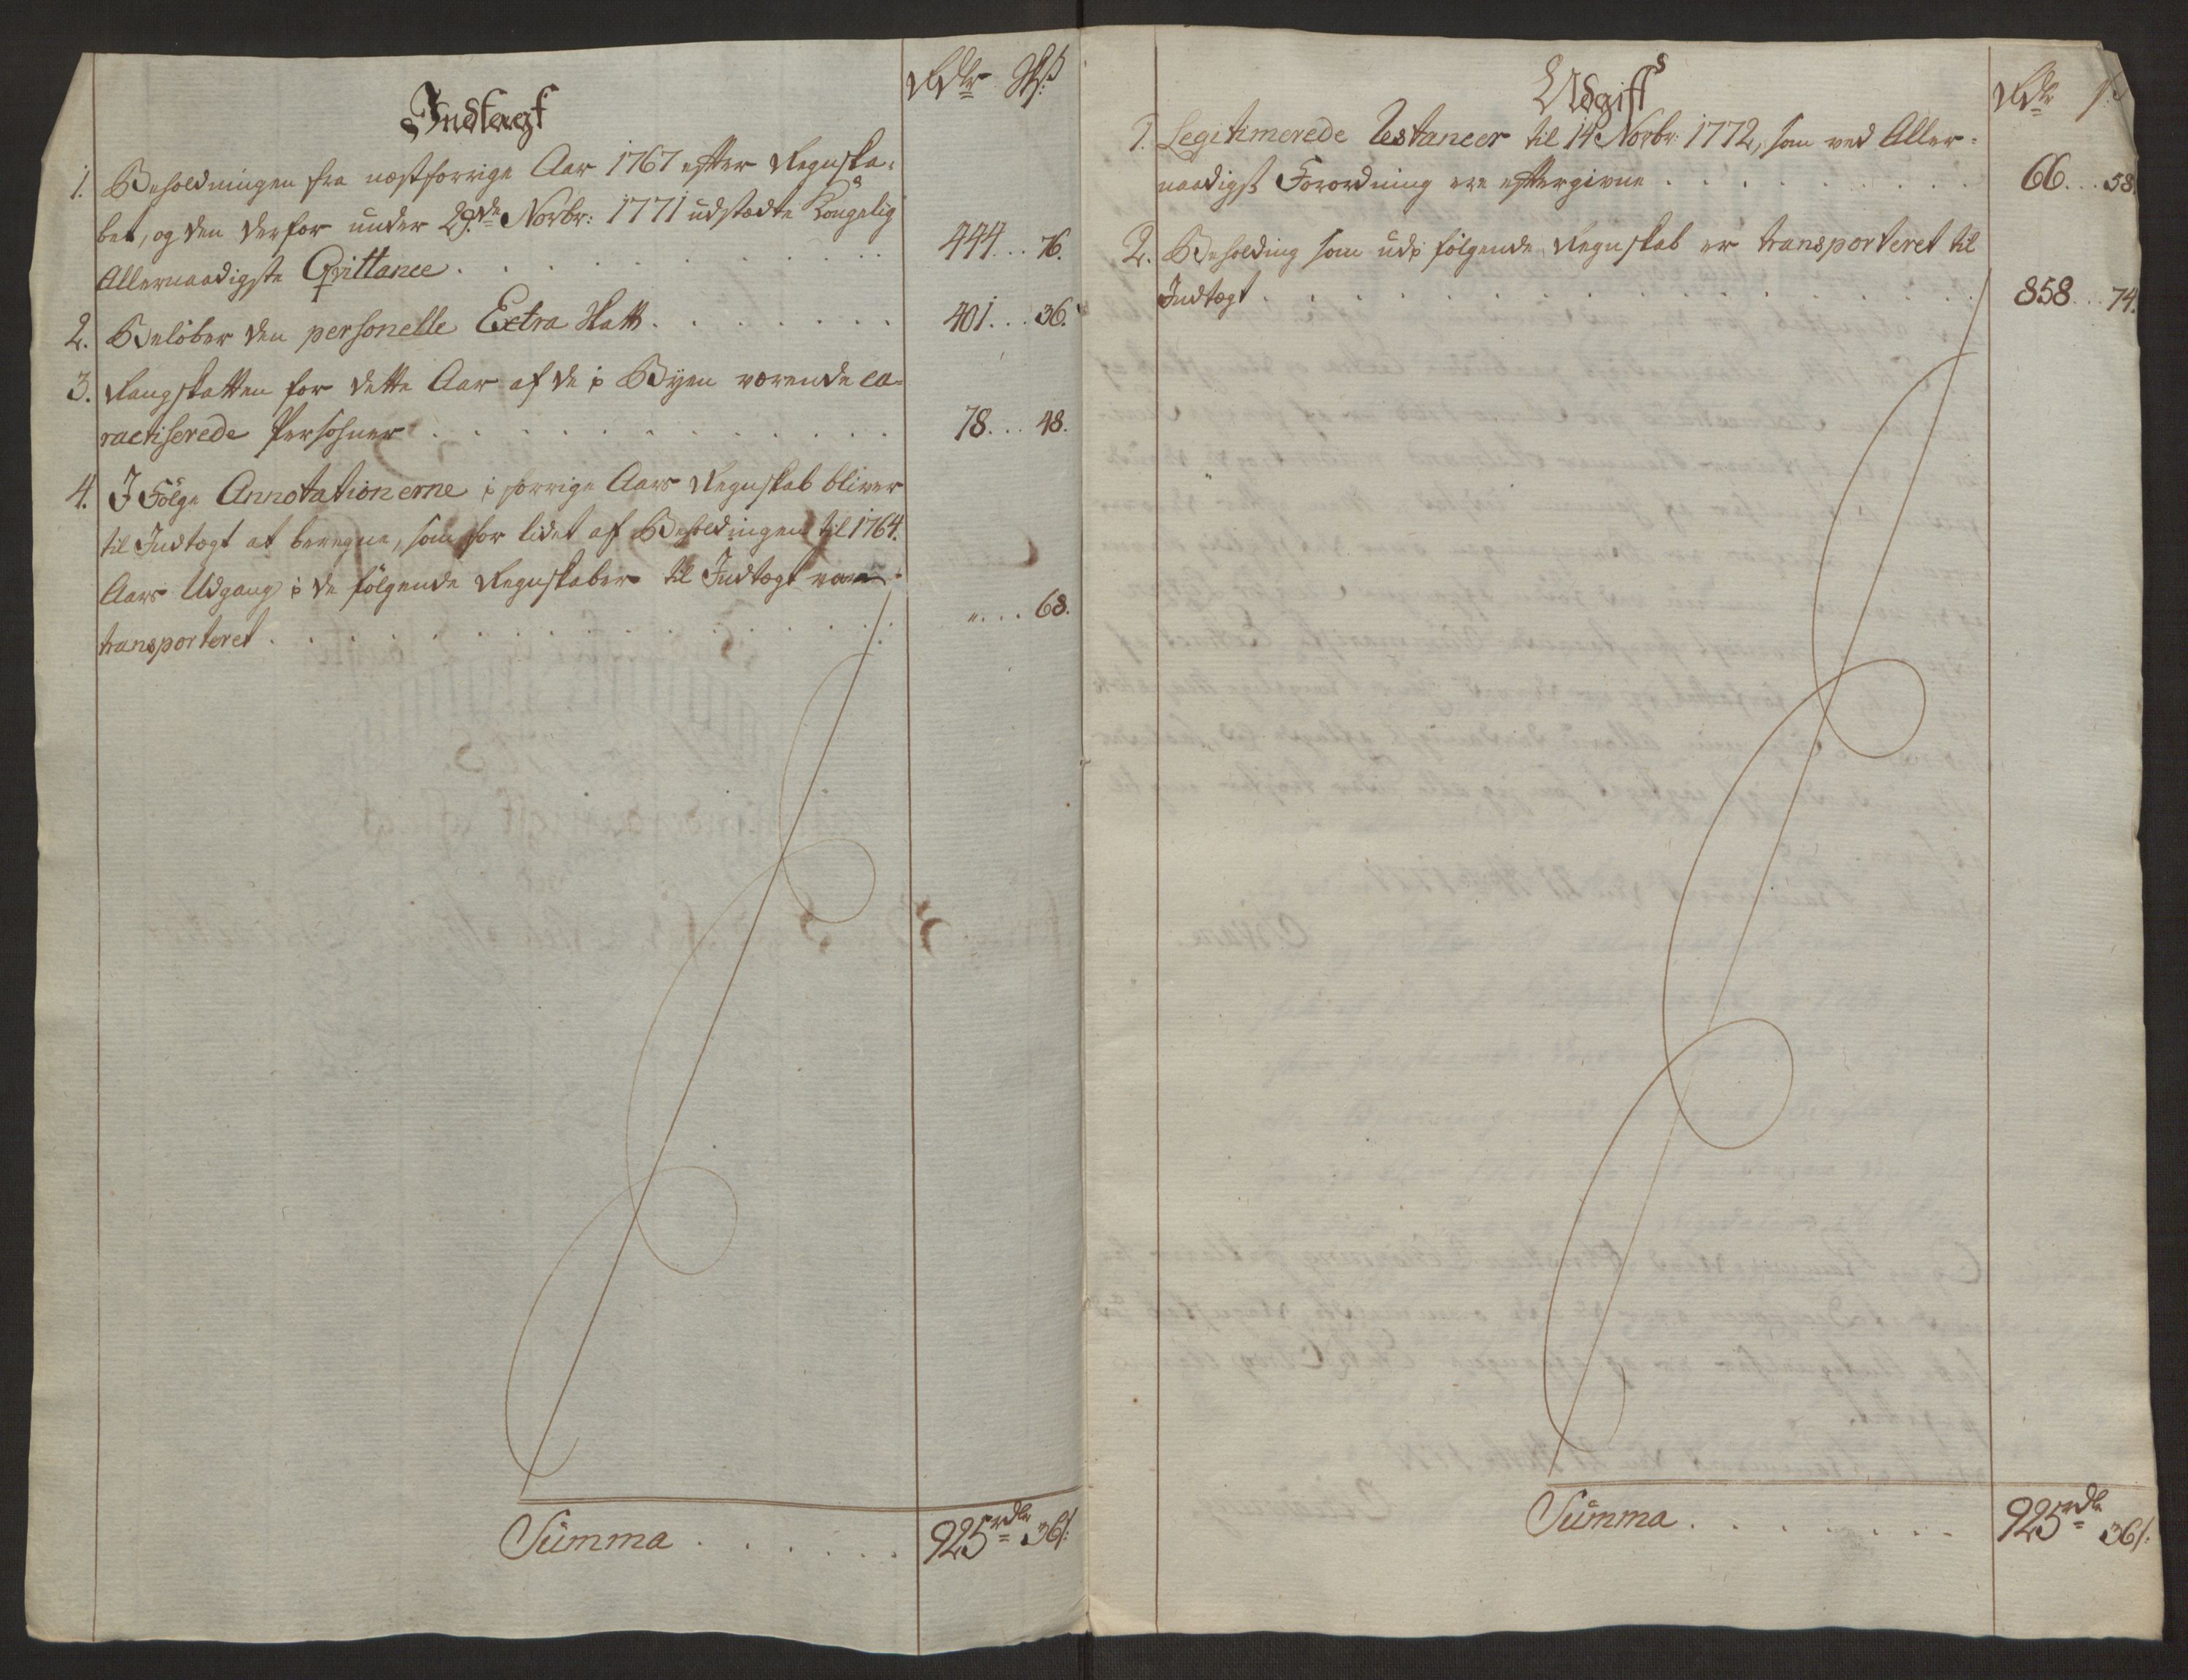 Indtægt
Rdlr ß:
1. Beholdningen fra næstforrige Aar 1767 efter Regnska-
bet, og den derfor under 29.de Novbr: 1771 udstædte Kongelig
Allernaadigste Qvittance . . . . . . . . . 444 . . 76.
2. Beløber den personelle Extra Skatt . . . . . . . 401 . . . 36.
3. Rangskatten for dette Aar af de i Byen værende ca-
racteriserede Persohner . . . . . . . . . . 78 . . . 48.
4. I Følge Annotationerne i forrige Aars Regnskab bliver
til Indtægt at beregne, som for lidet af Beholdningen til 1764.
Aars Udgang i de følgende Regnskaber til Indtægt være
transporteret . . . . . . . . . . . . . " . . . 68.
Summa . . . . . . 925 rdlr 36 ß:
Udgift
Rdlr ß:
1. Legitimerede Restancer til 14 Novbr: 1772, som ved Aller-
naadigst Forordning ere eftergivne . . . . . . . . 66 . . . 58.
2. Beholding som udi følgende Regnskab er transporteret til
Indtægt . . . . . . . . . . . . . . . 858 . . . 74.
Summa . . . . . . . 925 rdlr 36 ß: